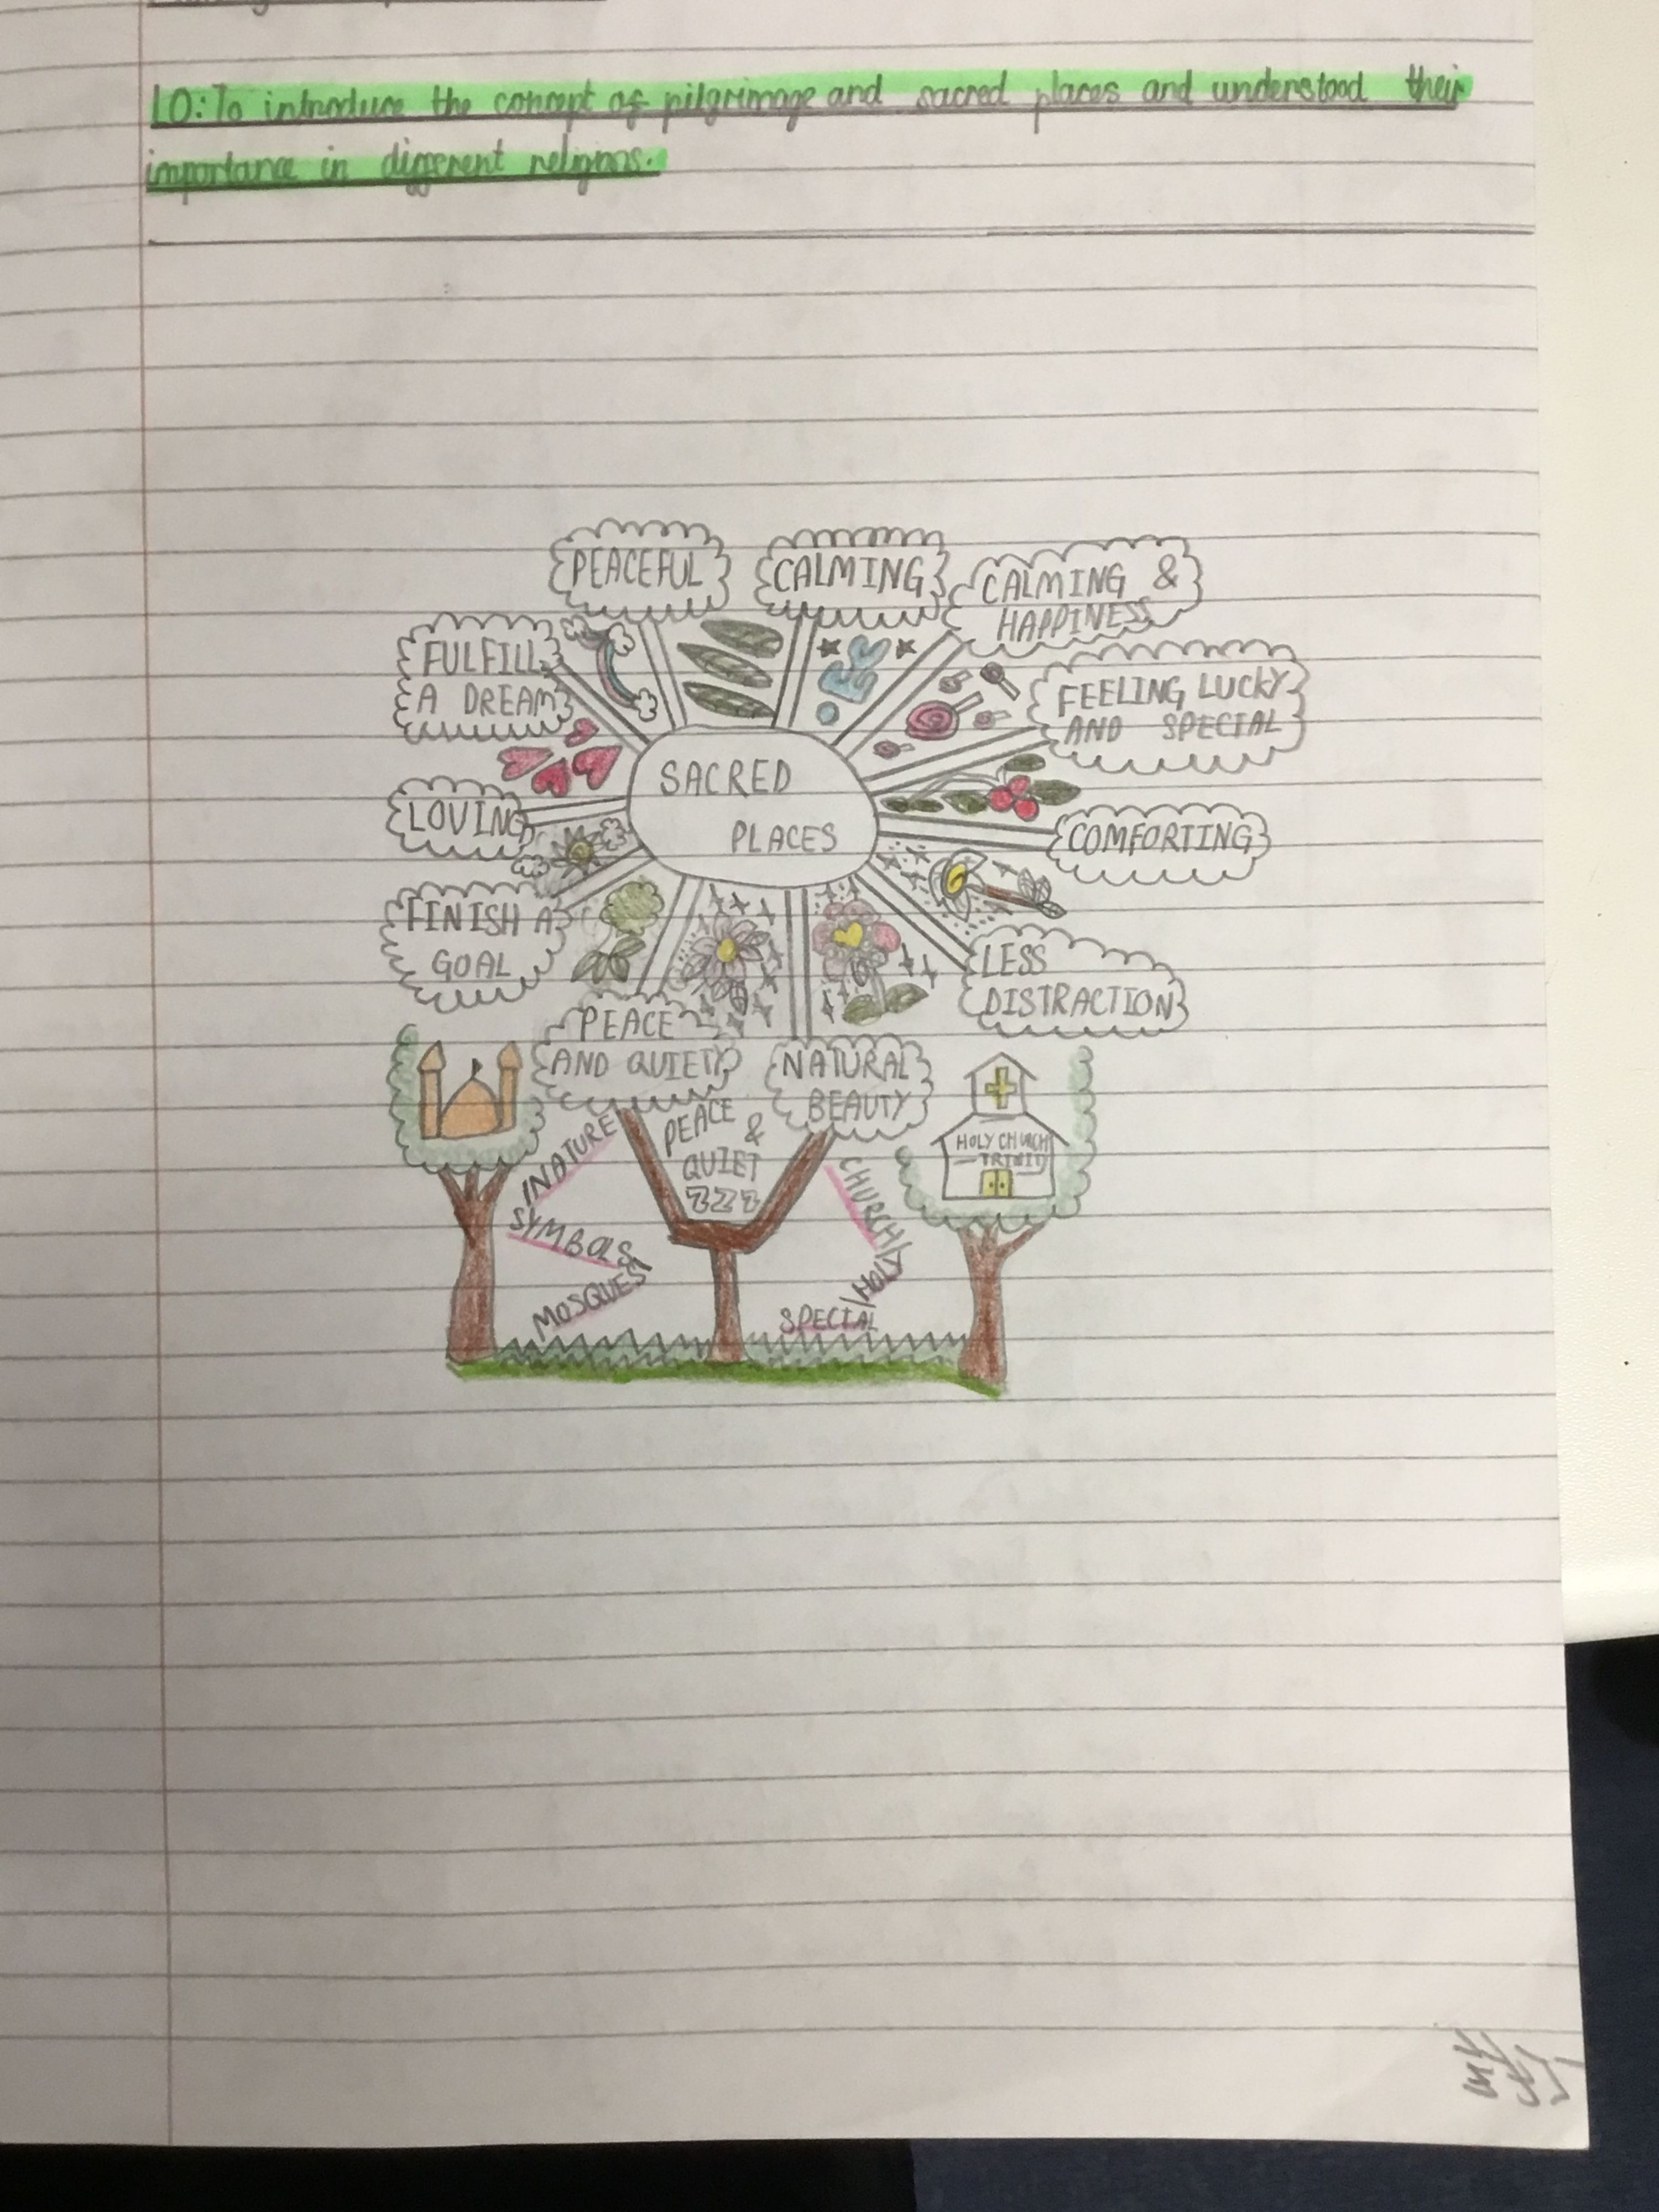 LO: To introduce the concept of pilgrimage and sacred places and understood their
importance in different religions.
PEACEFUL
CALMING
CALMING &
HAPPINESS
FULFILL
A DREAM
FEELING LUCKY
AND SPECIAL
SACRED
PLACES
LOVING
COMFORTING
FINISH A
GOAL
LESS
DISTRACTION
PEACE
AND QUIETY
NATURAL
BEAUTY
PEACE
&
QUIET
ZZZ
NATURE
SYMBOLS
MOSQUES
CHURCH
HOLY
SPECIAL
HOLY CHURCH
TRINITY